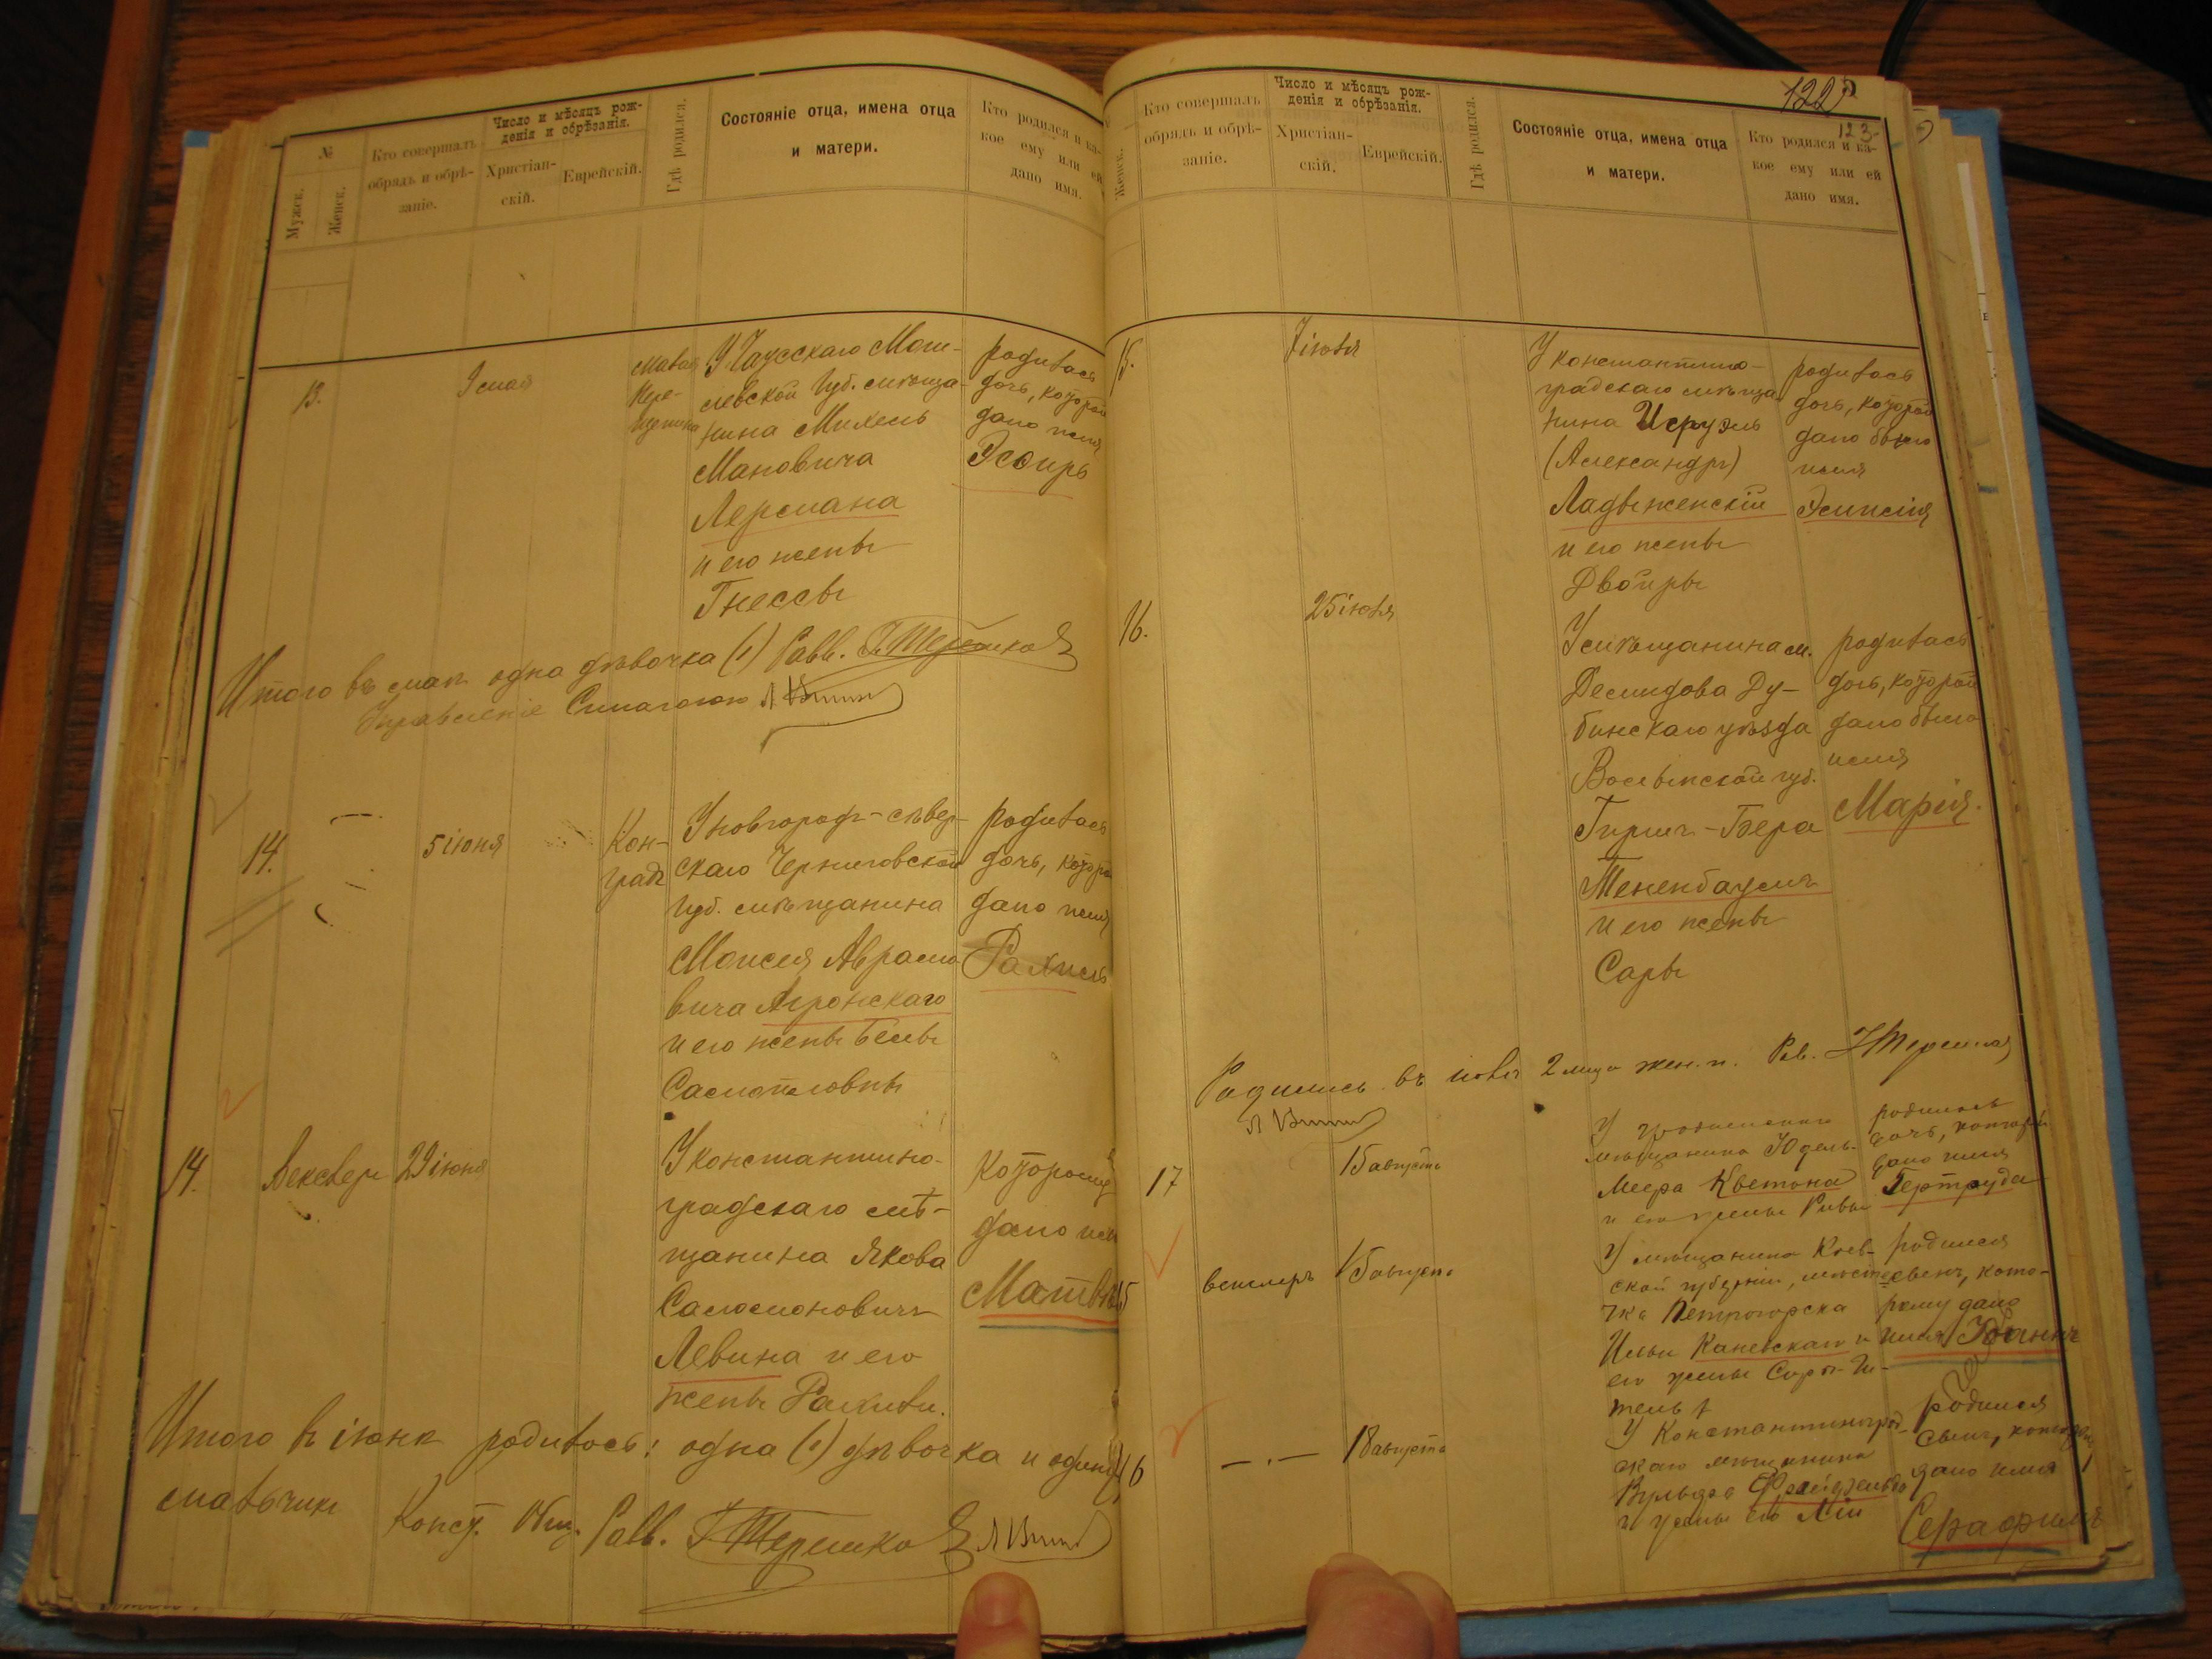 №
Мужск.
Женск.
Кто совершалъ
обрядъ и обрѣ-
заніе.
Число и мѣсяцъ рож-
денія и обрѣзанія.
Христіан-
скій.
Еврейскій.
Гдѣ родился.
Состояніе отца, имена отца
и матери.
Кто родился и ка-
кое ему или ей
дано имя.
13.
9 мая
Малая
Пере-
щепина
У Чаусскаго Моги-
левской губ. мѣща-
нина Михель
Мановича
Лермана
и его жены
Гнессы
родилась
дочь, которой
дано имя
Эсѳирь
Итого въ маѣ одна дѣвочка (1) Равв.
Управленіе Синагогою
14.
5 іюня
Кон-
градъ
У новгородъ-сѣвер-
скаго Черниговской
губ. мѣщанина
Моисея Абрамо
вича Агронскаго
и его жены Бемы
родилась
дочь, которой
дано имя
Рахиль
14.
Векслеръ
29 іюня
У константино-
градскаго мѣ-
щанина Якова
Соломоновича
Левина и его
жены Рахили.
Которому
дано имя
Матвѣй
Итого въ іюнѣ родилось: одна (1) дѣвочка и одинъ
мальчикъ
Конст. Общ. Равв.
122
123
Женск.
Кто совершалъ
обрядъ и обрѣ-
заніе.
Число и мѣсяцъ рож-
денія и обрѣзанія.
Христіан-
скій.
Еврейскій.
Гдѣ родился.
Состояніе отца, имена отца
и матери.
Кто родился и ка-
кое ему или ей
дано имя.
15.
7 іюля
У константино-
градскаго мѣща
нина Исруэль
(Александръ)
Ладыженскій
и его жены
Двойры
родилась
дочь, которой
дано было
имя
16.
25 іюля
У мѣщанина м.
Демидова Ду-
бинскаго уѣзда
Волынской губ.
Гиршъ-Бера
Тененбаумъ
и его жены
Сары
родилась
дочь, которой
дано было
имя
Марія.
Родились въ іюлѣ 2 лица жен. п. Рав.
17
15 августа
мѣщанина Юдель-
Меера Кветона
и его жены Ривы
родилась
дочь, которой
дано имя
Гертруда
15
векслеръ 15 августа
У мѣщанина Кіев-
ской губерніи, мѣсте-
чка Петрогорска
Ильи Каневскаго и
его жены Сары-Ги-
тель
родился
сынъ, кото-
рому дано
имя Іоаннъ
16
— . — 18 августа
У Константиноград-
скаго мѣщанина
Вульфа
и жены его Ліи
родился
сынъ, которому
дано имя
Серафимъ